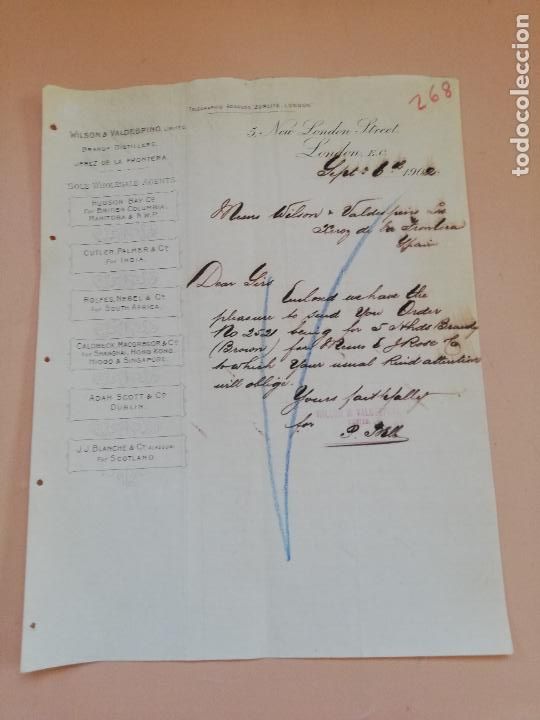 268
TELEGRAPHIC ADDRESS "ZURLITE, LONDON"
WILSON & VALDESPINO, LIMITED
BRANDY DISTILLERS,
JEREZ DE LA FRONTERA.
SOLE WHOLESALE AGENTS.
HUDSON BAY CO
FOR BRITISH COLUMBIA,
MANITOBA & N.W.P.
CUTLER, PALMER & CO
FOR INDIA.
ROLFES, NEBEL & CO
FOR SOUTH AFRICA.
CALDBECK, MACGREGOR & CO
FOR SHANGHAI, HONG KONG,
HIOGO & SINGAPORE.
ADAM SCOTT & CO
DUBLIN.
J.J. BLANCHE & CO GLASGOW
FOR SCOTLAND.
5, New London Street,
London, E.C.
Sept: 6th 1902
Messrs Wilson & Valdespino Ld
Xerez de la Frontera
Spain
Dear Sirs
Enclosed we have the
pleasure to send you Order
No 2521 being for 50 Hhds Brandy
(Brown) for Messrs E & J Rose Co
to which your usual kind attention
will oblige.
Yours faithfully
WILSON & VALDESPINO
for
todocoleccion